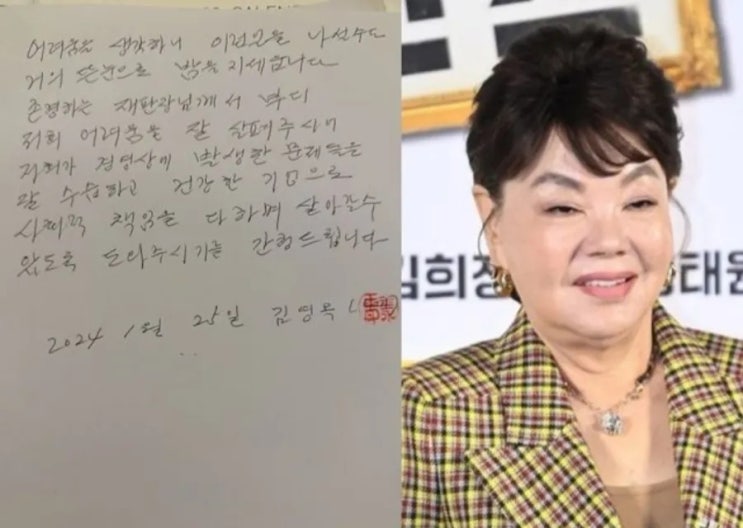 어려움을 생각하니
거의 뜬눈으로 밤을 지세웁니다
존경하는 재판장님께서 부디
저희 어려움을 잘 살펴주시어
저희가 경영상에 발생한 문제들을
잘 수습하고 건강한 기업으로
사회적 책임을 다하며 살아갈수
있도록 도와주시기를 간청드립니다
2024 1월 25일 김영옥
김희정 태원